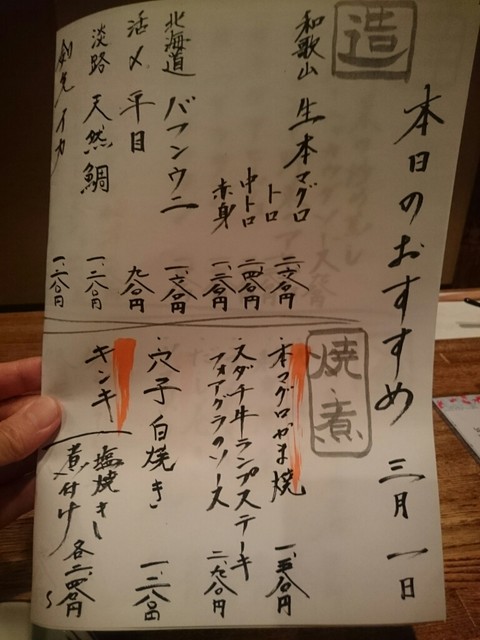 本日のおすすめ 三月一日
造
和歌山 生本マグロ
トロ 二、六〇〇円
中トロ 二、四〇〇円
赤身 一、二〇〇円
北海道 バフンウニ 一、六〇〇円
活〆 平目 九八〇円
淡路 天然鯛 一、二八〇円
剣先イカ 一、二八〇円
焼・煮
・本マグロかま焼 一、五〇〇円
・スダチ牛ランプステーキ
フォアグラのソース 二、九八〇円
・穴子白焼き 一、二八〇円
・キンキ 塩焼き
煮付け 各二、四〇〇円〜